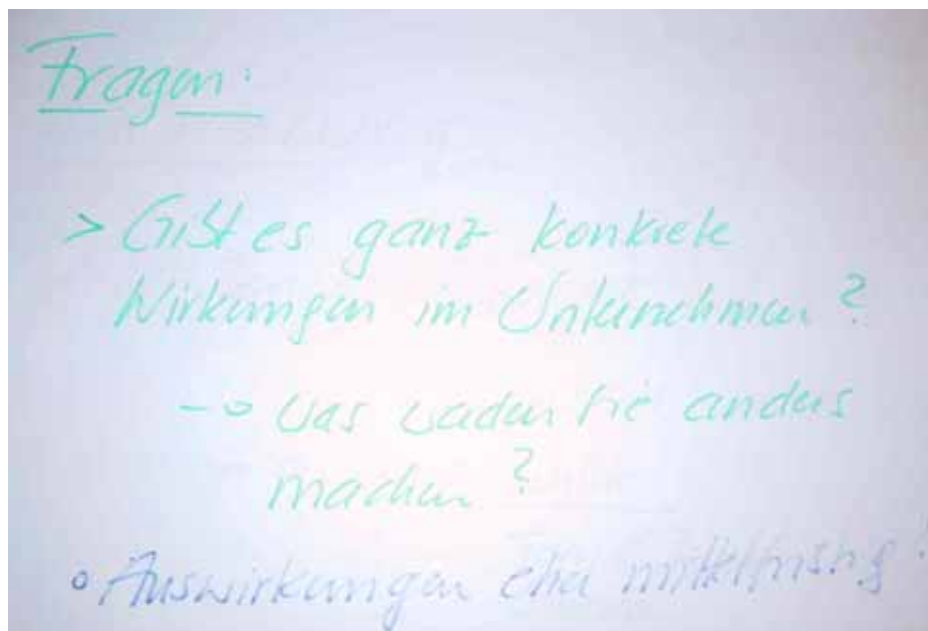 Fragen:
> Gibt es ganz konkrete
Wirkungen im Unternehmen?
-o Was werden Sie anders
machen?
o Auswirkungen eher mittelfristig!